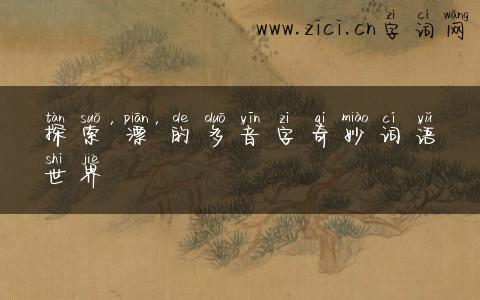 zì cí wǎng
www.zici.cn字词网
tàn suǒ , piān , de duō yīn zì qí miào cí yǔ
探索,漂,的多音字奇妙词语
shì jiè
世界